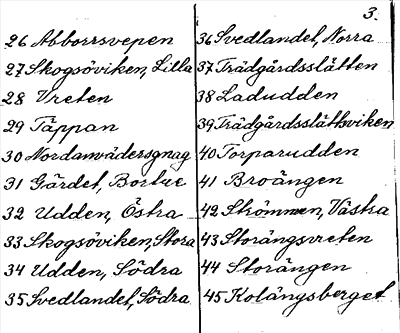 3.
26 Abborrsvepen
27 Skogsöviken, Lilla
28 Vreten
29 Täppan
30 Nordanvädersgnag
31 Gärdet, Bortre
32 Udden, Östra
33 Skogsöviken, Stora
34 Udden, Södra
35 Svedlandet, Södra
36 Svedlandet, Norra
37 Trädgårdsslätten
38 Ladudden
39 Trädgårdsslättsviken
40 Torparudden
41 Broängen
42 Strömmen, Västra
43 Storängsvreten
44 Storängen
45 Kolängsberget